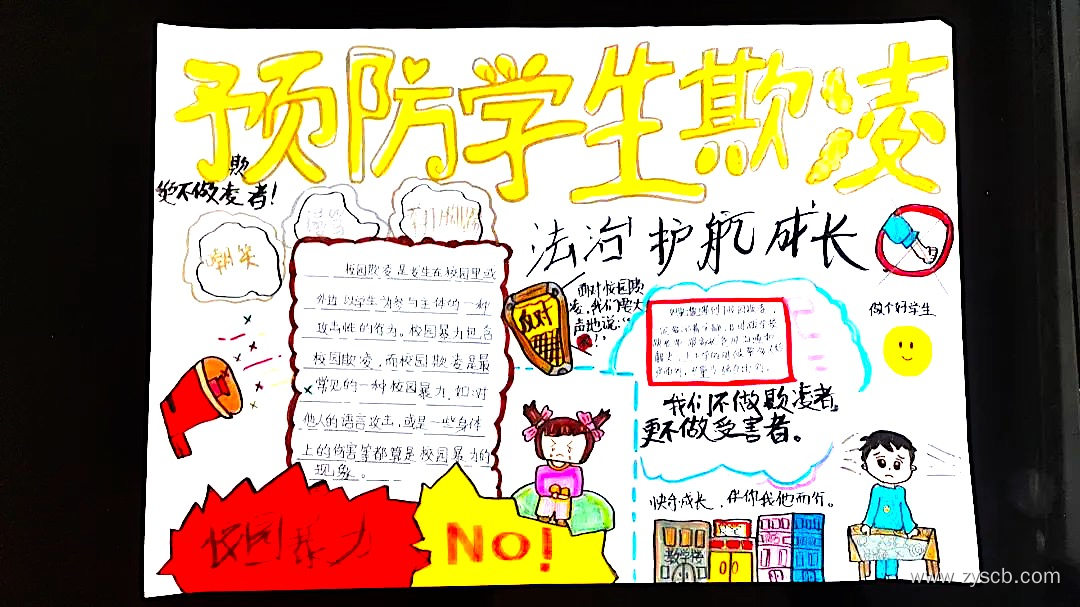 预防学生欺凌
欺
绝不做凌者!
法治护航成长
嘲笑
校园欺凌是发生在校园里或
外边以学生为参与主体的一种
攻击性的行为。校园暴力包含
校园欺凌,而校园欺凌是最
常见的一种校园暴力.如:对
他人的语言攻击,或是一些身体
上的伤害等都算是校园暴力的
现象。
反对
面对校园欺
凌,我们要大
声地说:
做个好学生
我们不做欺凌者,
更不做受害者。
快乐成长,伴你我他而行。
教学楼
校园暴力
No!
www.zyscb.com